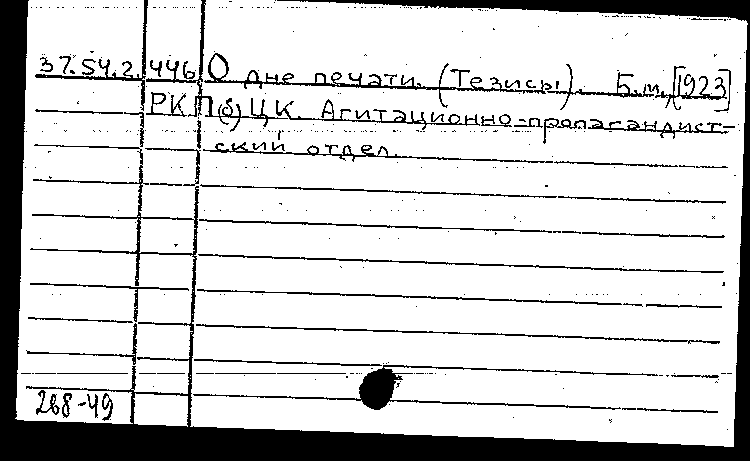 37.54.2. 446 О дне печати. (Тезисы). Б.м., [1923]
РКП(б) ЦК. Агитационно-пропагандист-
ский отдел.
268-49